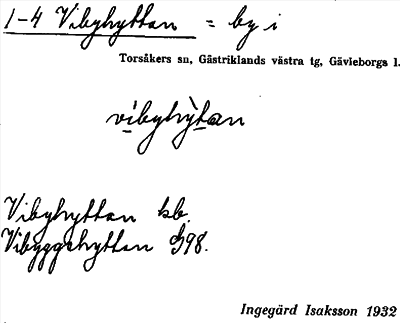 1-4 Vibyhyttan = by i
Torsåkers sn, Gästriklands västra tg, Gävleborgs l.
vibyhỳtan
Vibyhyttan kb.
Vibyggehyttan G98.
Ingegärd Isaksson 1932